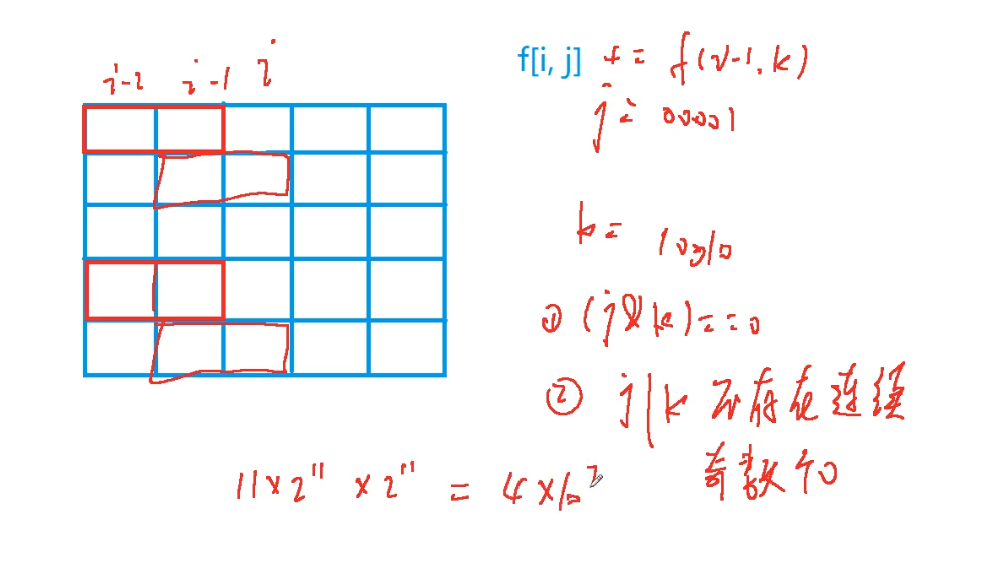 i-2 i-1 i
f[i, j] += f(i-1, k)
j = 00001
k = 10010
① (j & k) == 0
② j|k 不存在连续
奇数个0
11 × 2^11 × 2^11 = 4×10^7